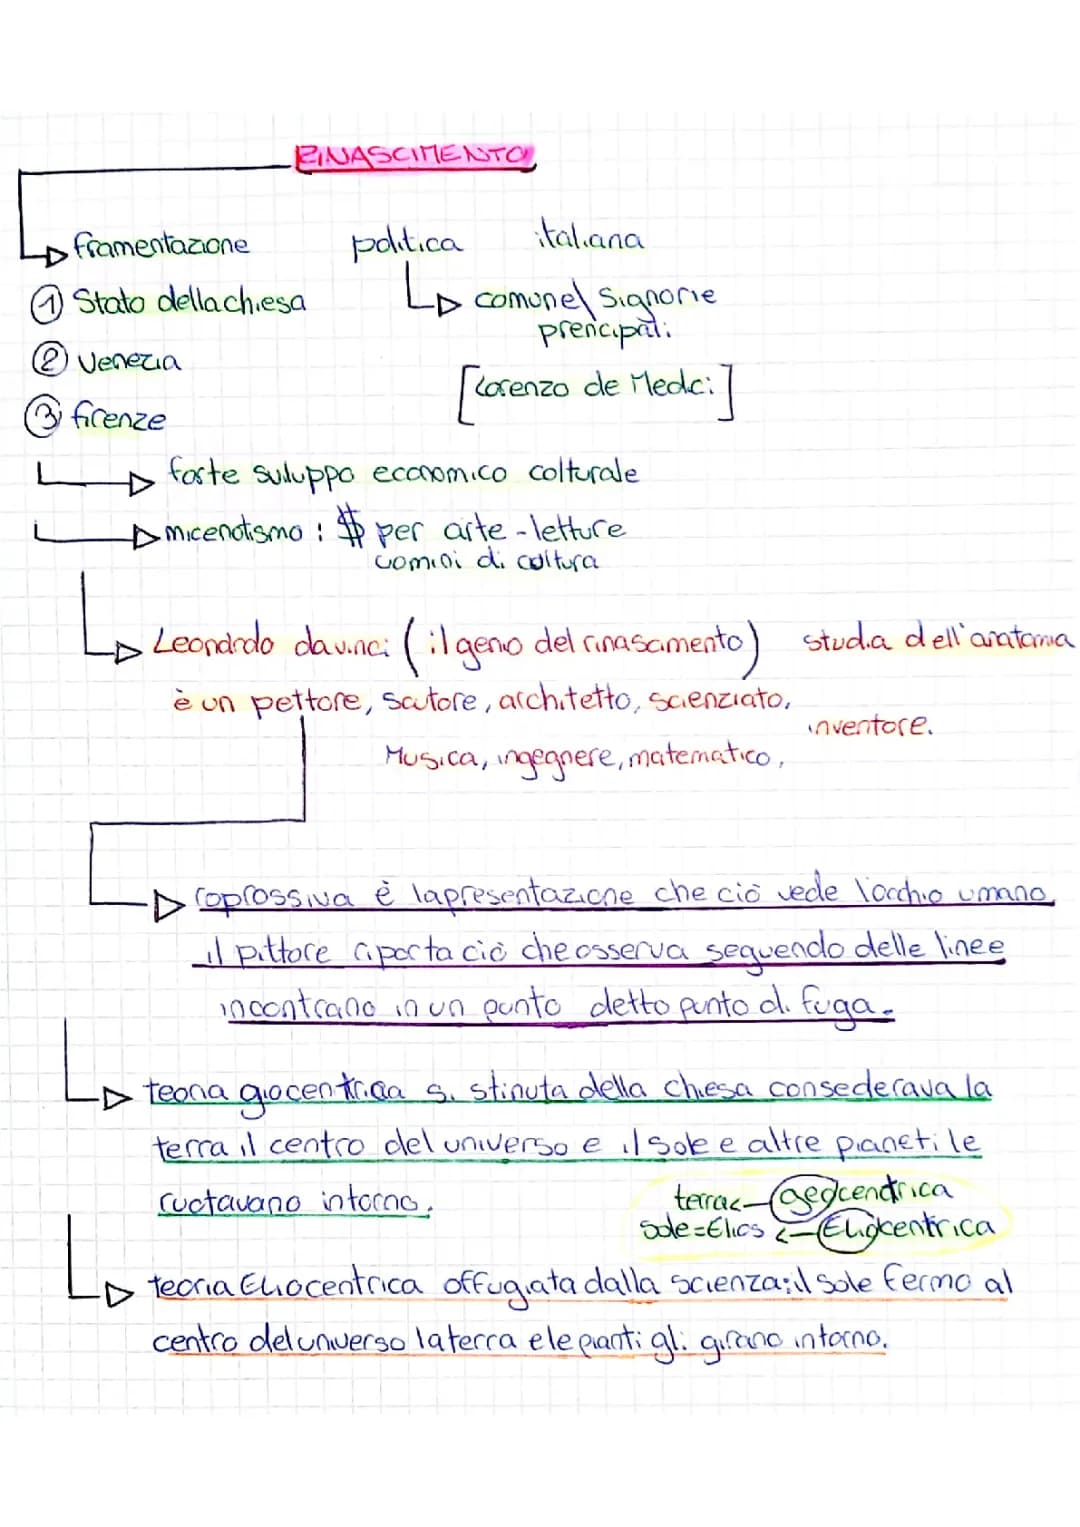 RINASCIMENTO
framentazione politica italiana
① Stato della chiesa
comune\ Signorie
prencipali
② Venezia
[Lorenzo de Medci]
③ firenze
foste suiluppo economico colturale
micenotismo : $ per arte - letture
uomini di coltura
Leonardo da vinci (il genio del rinascimento) studia dell'anatomia
è un pettore, scutore, architetto, scienziato,
inventore.
Musica, ingegnere, matematico,
roprossiva è lapresentazione che ciò vede l'occhio umano
il pittore riporta ciò che osserva seguendo delle linee
incontrano in un punto detto punto di fuga.
teoria giocentricaa si stinuta della chiesa consederava la
terra il centro del universo e il sole e altre pianeti le
ruotavano intorno.
terra<-geocendrica
Sole=Elios <-Eliocentrica
teoria Eliocentrica offugiata dalla scienza; il Sole fermo al
centro del universo la terra e le pianti gli girano intorno.